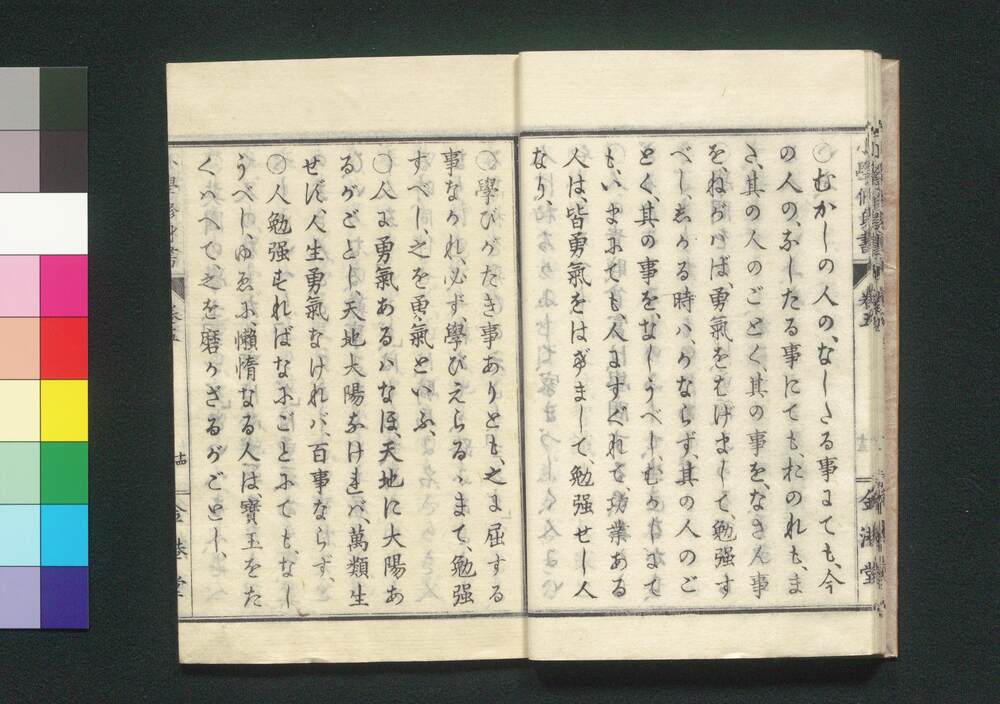 小學修身書 卷五 金港堂
〇むかしの人の、なしたる事にても、今
の人の、なしたる事にても、おのれも、ま
た、其の人のごとく、其の事を、なさん事
を、ねがはば、勇氣をはげまして、勉强す
べし、しかる時ハ、かならず、其の人のご
とく、其の事を、なしうべし、むかしまて
も、いまにても、人にすぐれて、功業ある
人は、皆勇氣をはげまして、勉强せし人
なり、
〇學びがたき事ありとも、之に屈する
事なかれ、必ず、學びえらるゝまで、勉强
すべし、之を勇氣といふ、
〇人に勇氣あるハ、なほ、天地に大陽あ
るがごとし、天地大陽なけれバ、萬類生
せず、人生勇氣なけれバ、百事ならず、
〇人勉强すればなにごとにても、なし
うべし、ゆゑに、懶惰なる人は、寶玉をた
くはへて、之を磨かざるがごとし、
小學修身書 卷五 十四 金港堂